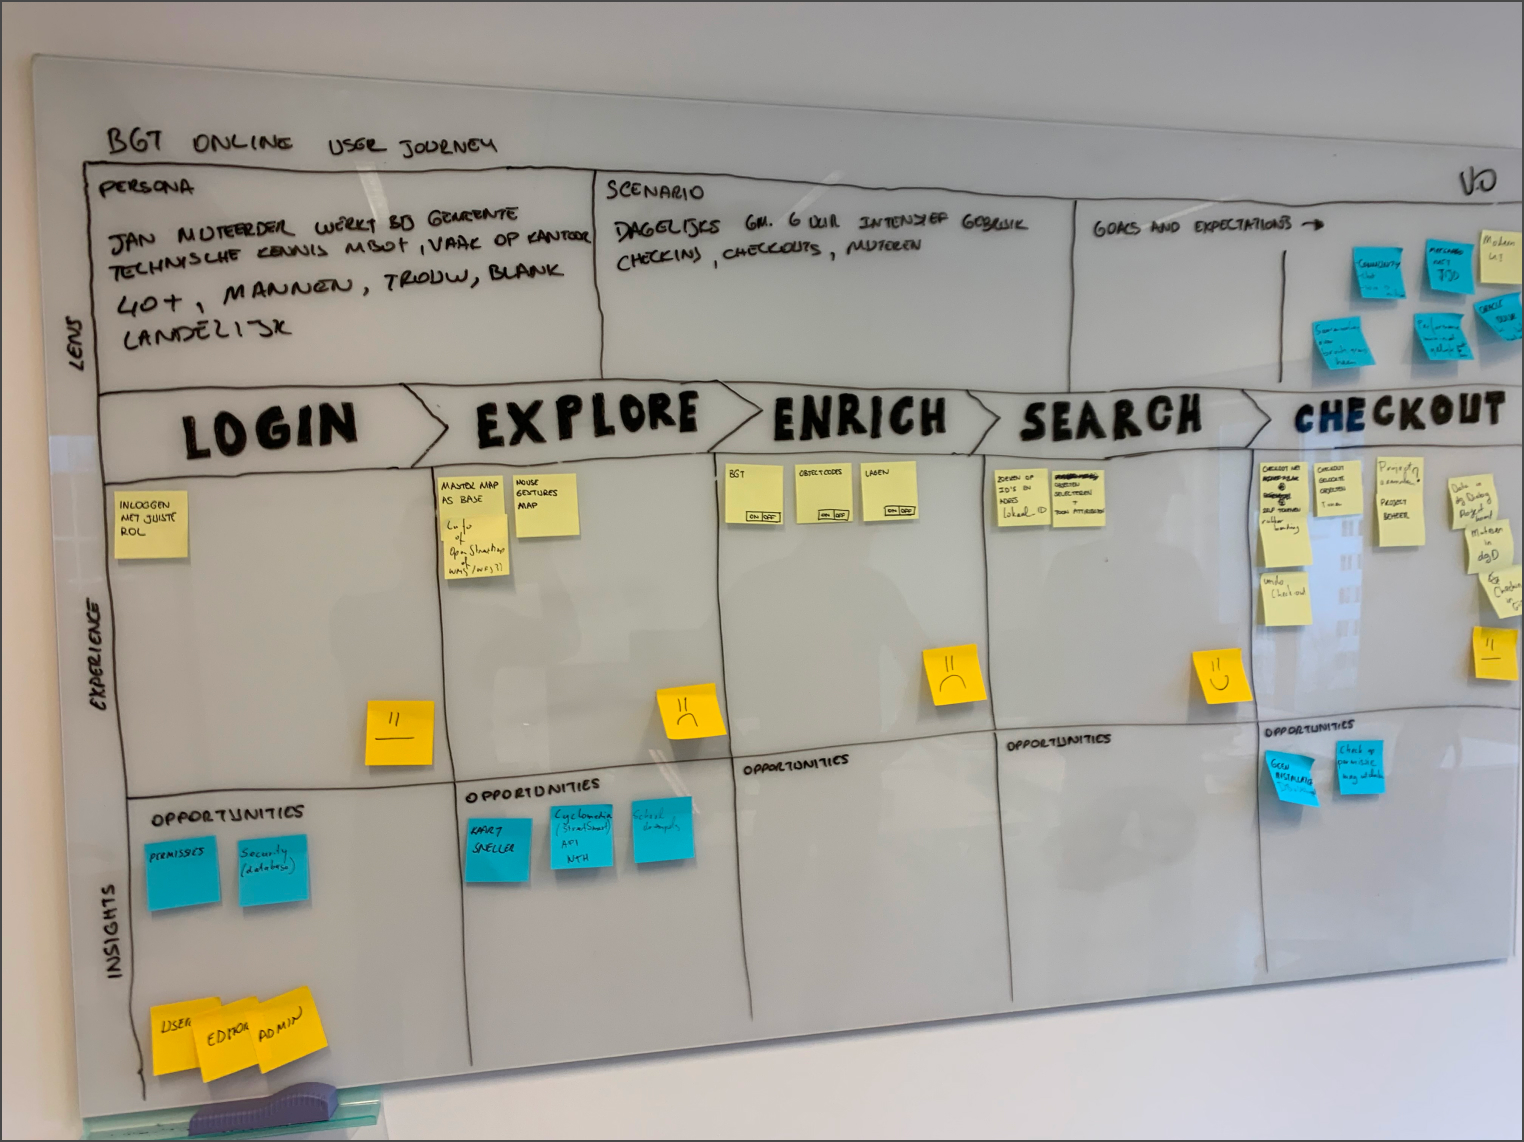 BGT ONLINE USER JOURNEY
V.0
LENS
PERSONA
JAN MUTEERDER WERKT BIJ GEMEENTE
TECHNISCHE KENNIS MBO+, VAAK OP KANTOOR
40+, MANNEN, TROUW, BLANK
LANDELIJK
SCENARIO
DAGELIJKS GM. 6 UUR INTENSIEF GEBRUIK
CHECKINS, CHECKOUTS, MUTEREN
GOALS AND EXPECTATIONS →
Modern
LOGIN
EXPLORE
ENRICH
SEARCH
CHECKOUT
EXPERIENCE
INLOGGEN
MET JUISTE
ROL
MASTER MAP
AS BASE
Info
of
OpenStreetmap
of
WMS/WFS??
MOUSE
GESTURES
MAP
BGT
ON OFF
OBJECTCODES
ON OFF
LAGEN
ON OFF
ZOEKEN OP
ID'S EN
ADRES
Lokaal ID
OBJECTEN
SELECTEREN
+
TOON ATTRIBUTEN
CHECKOUT MET
ZELF TEKENEN
CHECKOUT
SELECTIE
OBJECTEN
Undo
Checkout
PROJECT
BEHEER
Data in
Muteren
in
dgD
INSIGHTS
OPPORTUNITIES
PERMISSIES
Security
(database)
USER
EDITOR
ADMIN
OPPORTUNITIES
KAART
SNELLER
Cyclomedia
(StreetSmart)
API
NTH
OPPORTUNITIES
OPPORTUNITIES
OPPORTUNITIES
GEEN
INSTALLATIE
Check op
permissie